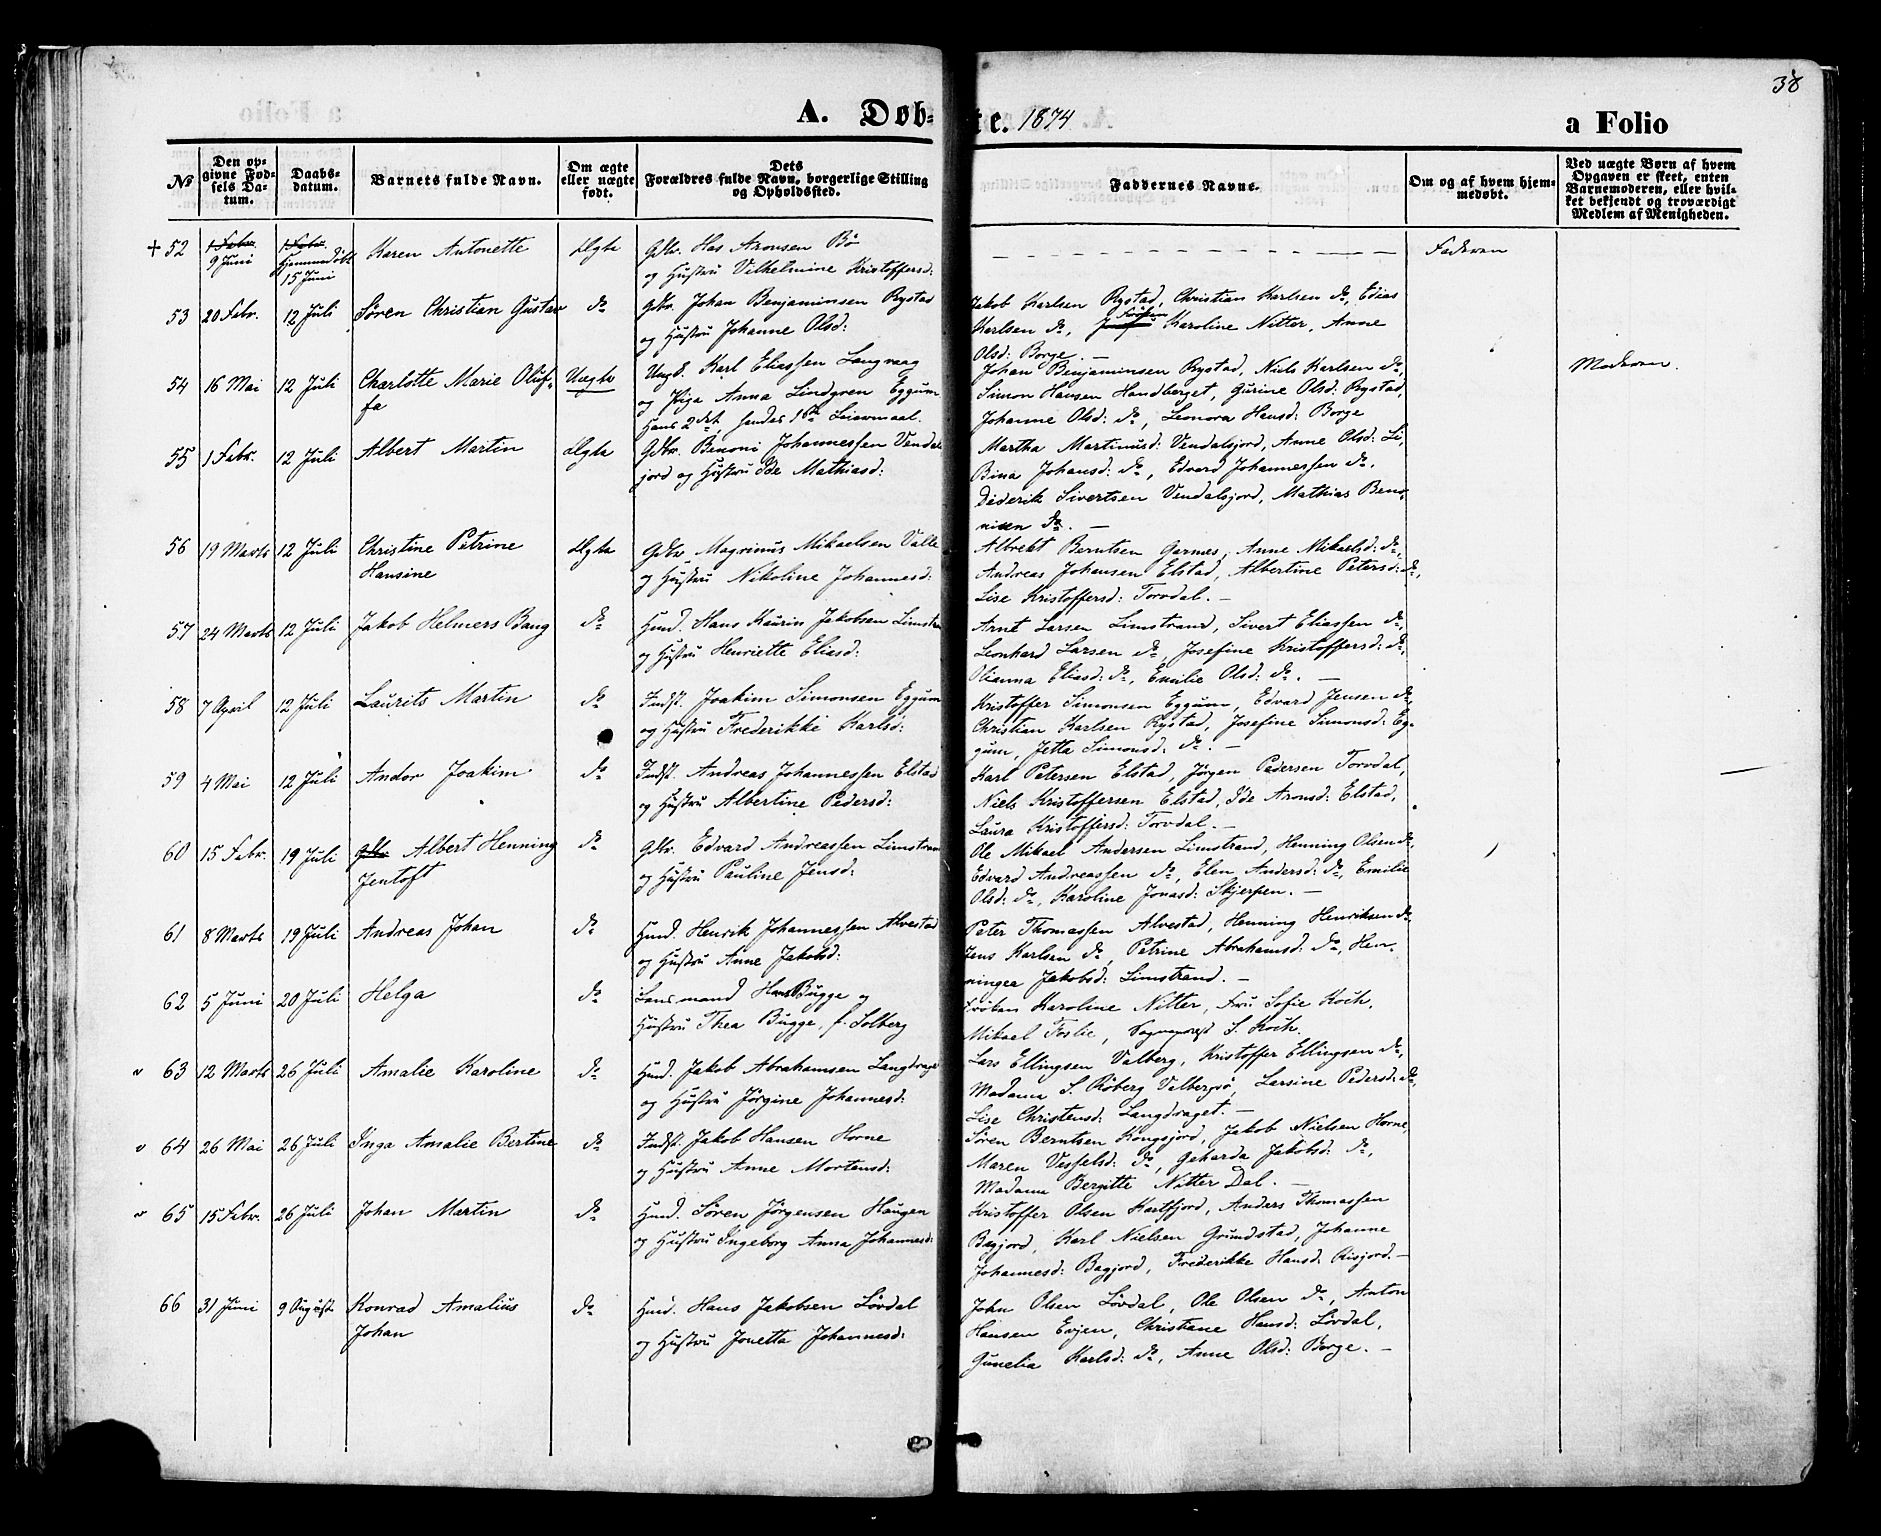 38
A. Døbte. 1874. a Folio
No
Den opgivne Fødsels Datum.
Daabsdatum.
Barnets fulde Navn.
Om ægte eller uægte født.
Dets Forældres fulde Navn, borgerlige Stilling og Opholdssted.
Faddernes Navne.
Om og af hvem hjemmedøbt.
Ved uægte Børn af hvem Opgaven er skeet, enten Barnemoderen, eller hvilket bekjendt og troværdigt Medlem af Menigheden.
+ 52 1 Febr. 9 Juni 1 Febr. Hjemmedøbt 15 Juni Karen Antonette Ægte Gdbr. Has Aronsen Bø Faderen
og Hustru Vilhelmine Kristoffersd:
53 20 Febr. 12 Juli Søren Christian Gustav do Gdbr. Johan Benjaminsen Rystad
og Hustru Johanne Olsd:
Jakob Karlsen Rystad, Christian Karlsen do, Edias
Karlsen do, Frøken Karoline Nitter, Anne
Olsd: Borge. —
54 16 Mai 12 Juli Charlotte Marie Oluffa Uægte Ungk. Karl Eliassen Langvaag Moderen.
og Pige Anna Lindgren Eggum
Hans 2det, hendes 1ste Leiermaal.
Johan Benjaminsen Rystad, Niels Karlsen do,
Simon Hansen Handberget, Gurine Olsd: Rystad,
Johanne Olsd: do, Leonora Hansd: Borge
55 1 Febr. 12 Juli Albert Martin Ægte Gdbr. Benoni Johannessen Vendalsjord og Hustru Ide Mathiasd:
Martha Martinusd: Vendalsjord, Anne Olsd: Li,
Bina Johansd: do, Edvard Johannessen do.
Diderik Sivertsen Vendalsjord, Mathias Benonisen do. —
56 19 Marts 12 Juli Christine Petrine Hansine Ægte Gdbr Magrinus Mikaelsen Valle
og Hustru Nikoline Johannesd:
Albrekt Berntsen Garnes, Anne Mikaelsd: do,
Andreas Johansen Elstad, Albertine Petersd: do,
Lise Kristoffersd: Torvdal. —
57 24 Marts 12 Juli Jakob Helmers Bang do Hmd. Hans Kaurin Jakobsen Limstrand
og Hustru Henriette Eliasd:
Arnt Larsen Limstrand, Sivert Eliassen do,
Leonhard Larsen do, Josefine Kristoffersd: do,
Olianna Eliasd: do, Emilie Olsd: do. —
58 7 April 12 Juli Laurits Martin do Indst. Joakim Simonsen Eggum
og Hustru Frederikke Karlsd:
Kristoffer Simonsen Eggum, Edvard Jensen do,
Christian Karlsen Rystad, Josefine Simonsd: Eggum, Jetta Simonsd: do. —
59 4 Mai 12 Juli Andor Joakim do Indst. Andreas Johannessen Elstad
og Hustru Albertine Pedersd:
Karl Petersen Elstad, Jørgen Pedersen Torvdal,
Niels Kristoffersen Elstad, Ide Aronsd: Elstad,
Laura Kristoffersd: Torvdal. —
60 15 Febr. 19 Juli Gdbr. Albert Henning Jentoft do Gdbr. Edvard Andreassen Limstrand
og Hustru Pauline Jensd:
Ole Mikael Andersen Limstrand, Henning Olsen do,
Edvard Andreassen do, Elen Andersd: do, Emilie
Olsd: do, Karoline Jonasd: Skjerpen. —
61 8 Marts 19 Juli Andreas Johan do Hmd. Henrik Johannessen Alvestad
og Hustru Anne Jakobsd:
Peter Thomassen Alvestad, Henning Henriksen do
Jens Karlsen do, Petrine Abrahamsd: do, Henningea Jakobsd: Limstrand. —
62 5 Juni 20 Juli Helga do Lensmand Hans Bugge og
Hustru Thea Bugge, f. Solberg
Frøken Karoline Nitter, Fru Sofie Koch,
Mikael Foslie, Sogneprest S. Koch.
63 12 Marts 26 Juli Amalie Karoline do Hmd. Jakob Abrahamsen Langdraget
og Hustru Jørgine Johannesd:
Lars Ellingsen Valberg, Kristoffer Ellingsen do,
Madame S. Røberg Valbergsø, Larsine Pedersd: do,
Lise Christensd: Langdraget. —
64 26 Mai 26 Juli Inga Amalie Bertine do Indst. Jakob Hansen Horne
og Hustru Anne Mortensd:
Søren Berntsen Kongsjord, Jakob Nielsen Horne,
Maren Vesselsd: do, Geharda Jakobsd: do,
Madame Bergitte Nitter Dal. —
65 15 Febr. 26 Juli Johan Martin do Hmd. Søren Jørgensen Haugen
og Hustru Ingeborg Anna Johannesd:
Kristoffer Olsen Kartfjord, Anders Thomassen
Bagjord, Karl Nielsen Grundstad, Johanne
Johannesd: Bagjord, Frederikke Hansd: Risjord. —
66 31 Juni 9 August Konrad Amalius Johan do Hmd. Hans Jakobsen Løvdal
og Hustru Jonetta Johannesd:
John Olsen Løvdal, Ole Olsen do, Anton
Hansen Evjen, Christiane Hansd: Løvdal,
Gunelia Karlsd: do, Anne Olsd: Borge. —